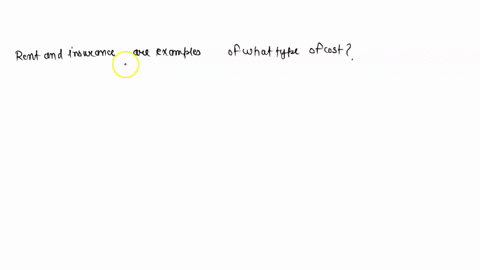 Rent and insurance are examples of what type of cost?